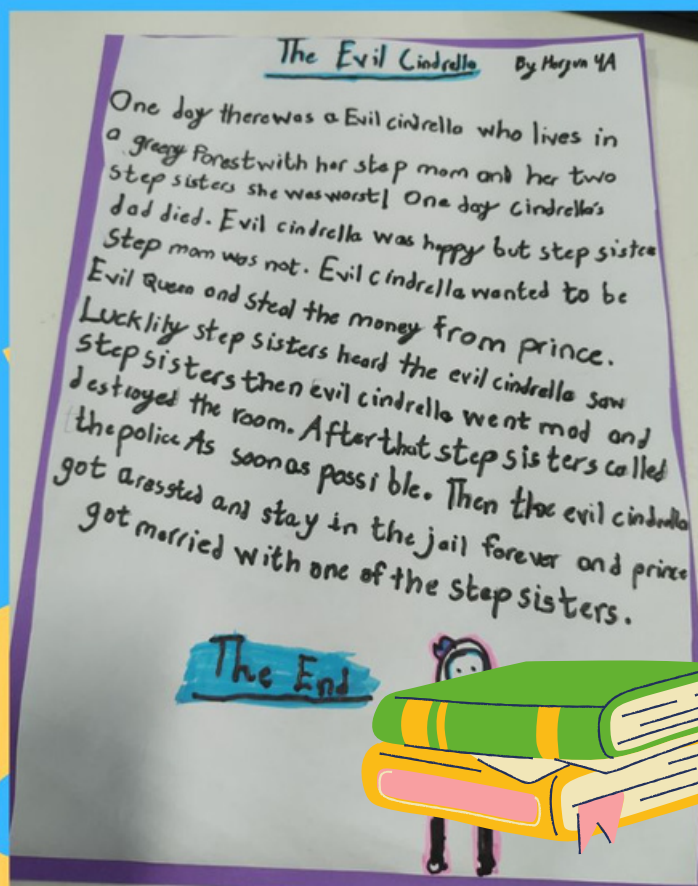 The Evil Cindrella By Morgun 4A
One day there was a Evil cindrella who lives in
a greepy Forest with her step mom and her two
step sisters she was worst! One day cindrella's
dad died. Evil cindrella was happy but step sister
step mom was not. Evil cindrella wanted to be
Evil Queen and steal the money from prince.
Lucklily step sisters heard the evil cindrella saw
step sisters then evil cindrella went mad and
destroyed the room. After that step sisters called
the police As soon as possible. Then the evil cindrella
got aressted and stay in the jail forever and prince
got married with one of the step sisters.
The End